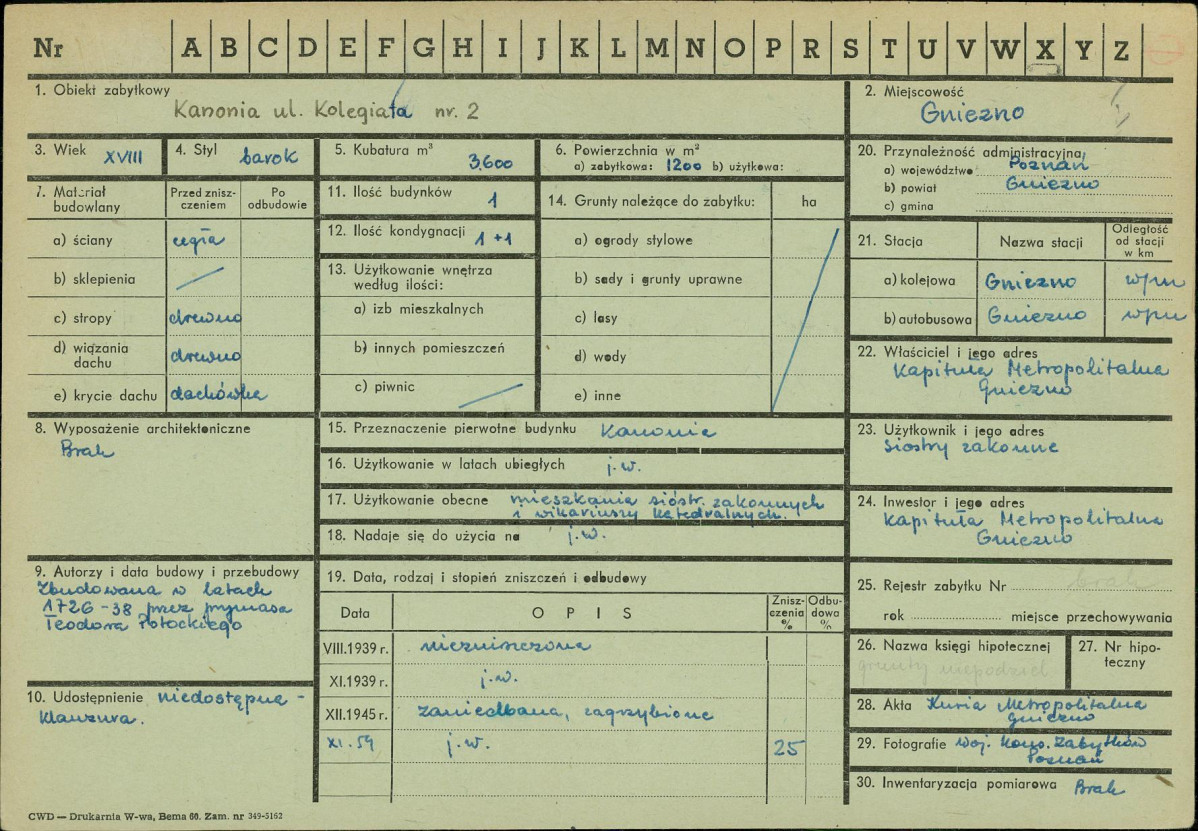 Nr A B C D E F G H I J K L M N O P R S T U V W X Y Z
1. Obiekt zabytkowy
Kanonia ul. Kolegiata nr. 2
2. Miejscowość
Gniezno
3. Wiek XVIII
4. Styl barok
5. Kubatura m³ 3.600
6. Powierzchnia w m²
a) zabytkowa: 1200 b) użytkowa:
7. Materiał budowlany
Przed zniszczeniem
Po odbudowie
a) ściany cegła
b) sklepienia
c) stropy drewno
d) wiązania dachu drewno
e) krycie dachu dachówka
8. Wyposażenie architektoniczne
Brak
9. Autorzy i data budowy i przebudowy
Zbudowana w latach
1726-38 przez prymasa
Teodora Potockiego
10. Udostępnienie niedostępna -
klauzura.
11. Ilość budynków 1
12. Ilość kondygnacji 1+1
13. Użytkowanie wnętrza
według ilości:
a) izb mieszkalnych
b) innych pomieszczeń
c) piwnic
14. Grunty należące do zabytku: ha
a) ogrody stylowe
b) sady i grunty uprawne
c) lasy
d) wody
e) inne
15. Przeznaczenie pierwotne budynku Kanonia
16. Użytkowanie w latach ubiegłych j.w.
17. Użytkowanie obecne mieszkania sióstr. zakonnych
i wikariuszy katedralnych.
18. Nadaje się do użycia na j.w.
19. Data, rodzaj i stopień zniszczeń i odbudowy
Data OPIS Zniszczenia % Odbudowa %
VIII.1939 r. niezniszczona
XI.1939 r. j.w.
XII.1945 r. zaniedbana, zagrzybione
XI.59 j.w. 25
20. Przynależność administracyjna
a) województwo Poznań
b) powiat Gniezno
c) gmina
21. Stacja Nazwa stacji Odległość od stacji w km
a) kolejowa Gniezno
b) autobusowa Gniezno
22. Właściciel i jego adres
Kapituła Metropolitalna
Gniezno
23. Użytkownik i jego adres
Siostry zakonne
24. Inwestor i jego adres
Kapituła Metropolitalna
Gniezno
25. Rejestr zabytku Nr brak
rok miejsce przechowywania
26. Nazwa księgi hipotecznej
grunty niepodziel.
27. Nr hipoteczny
28. Akta Kuria Metropolitalna
Gniezno
29. Fotografie Woj. Kons. Zabytków
Poznań
30. Inwentaryzacja pomiarowa Brak
CWD — Drukarnia W-wa, Bema 60. Zam. nr 349-5162